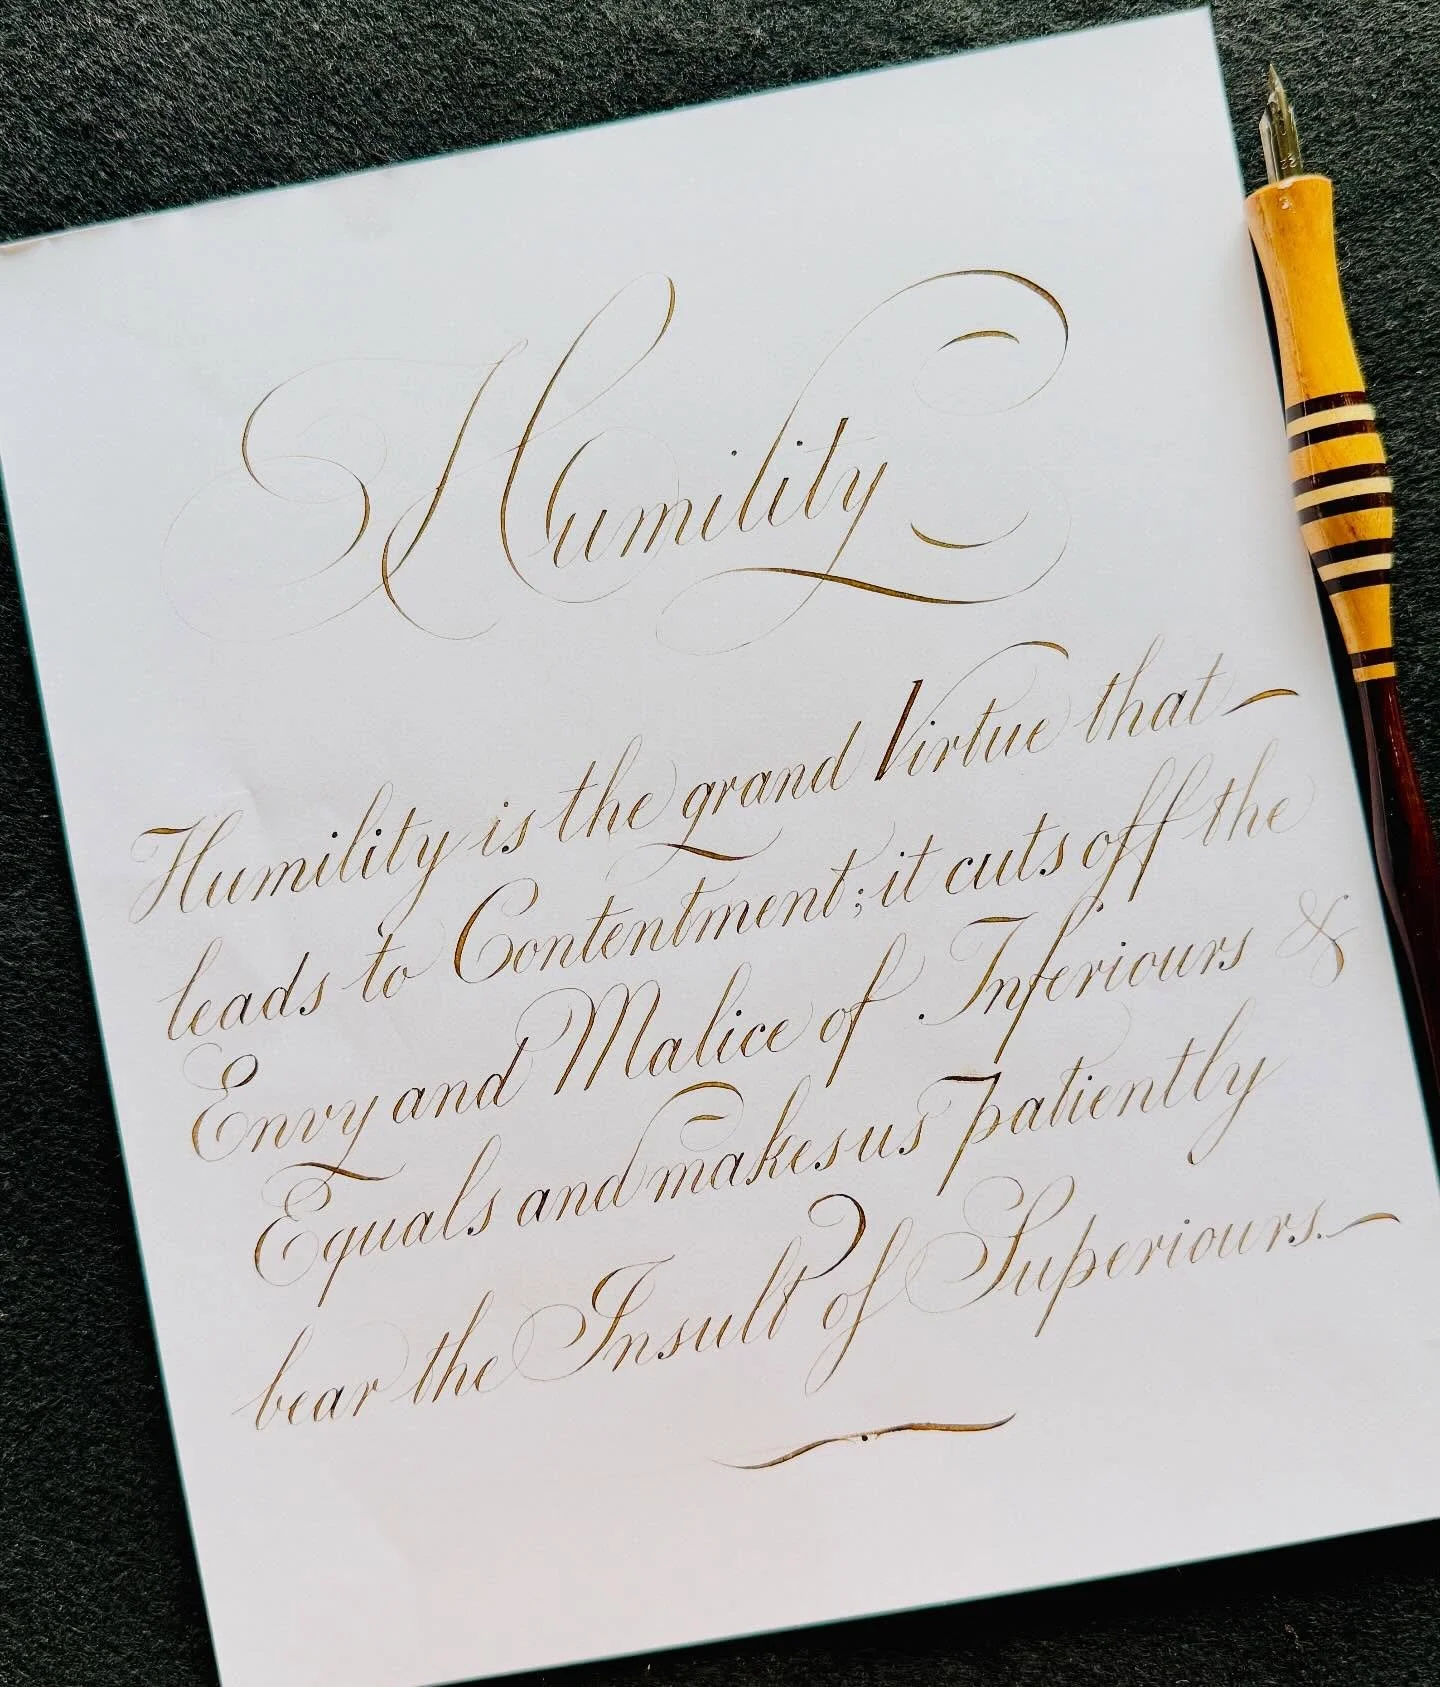 Humility
Humility is the grand Virtue that
leads to Contentment; it cuts off the
Envy and Malice of Inferiours &
Equals and makes us patiently
bear the Insult of Superiours.